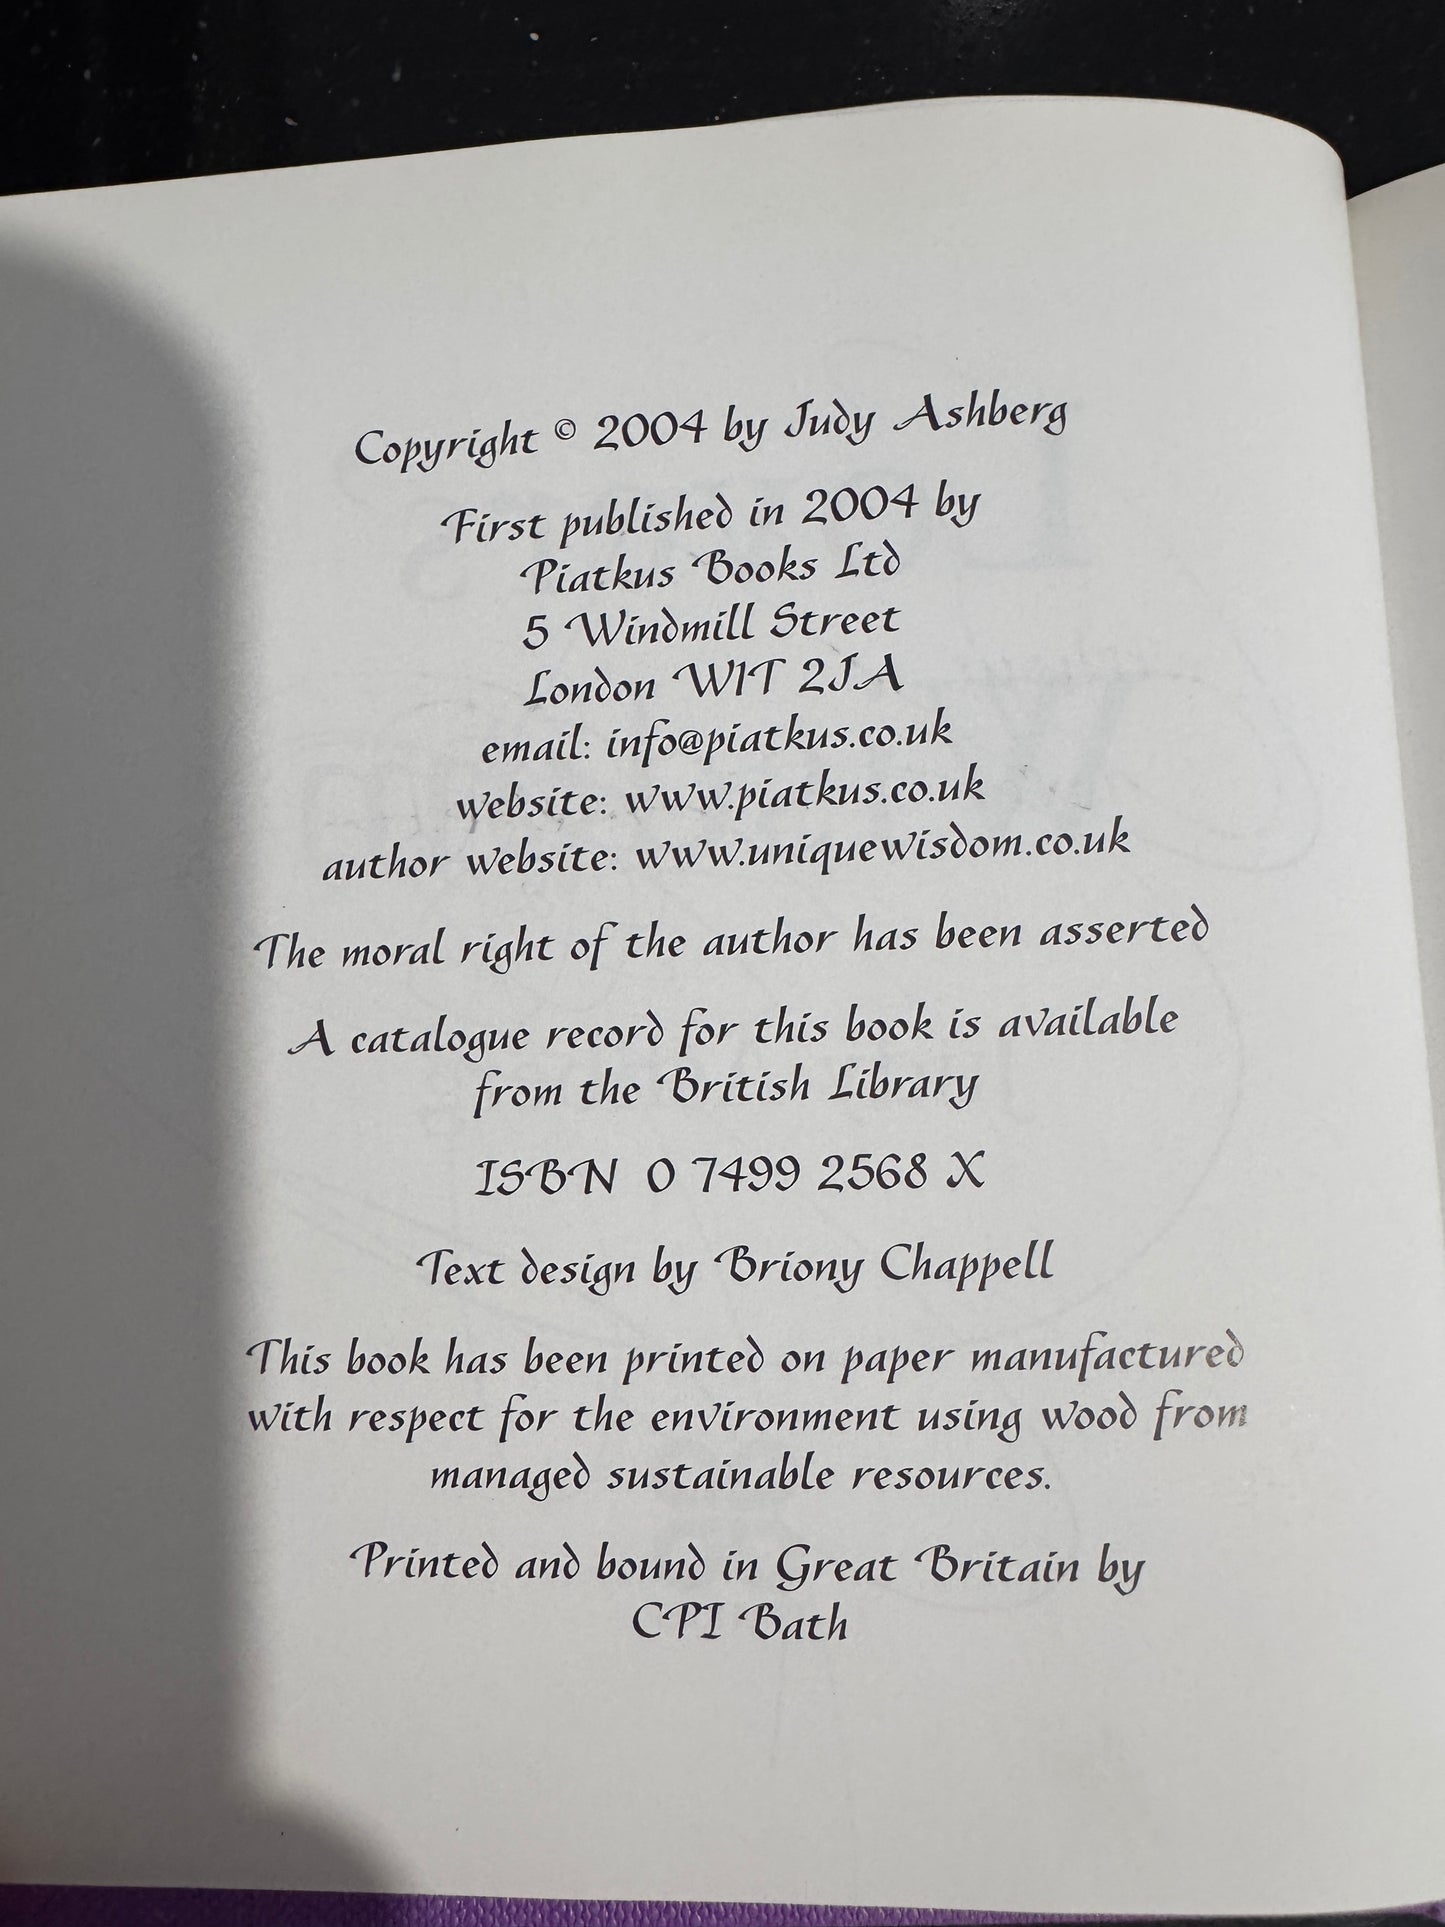 Copyright © 2004 by Judy Ashberg
First published in 2004 by
Piatkus Books Ltd
5 Windmill Street
London W1T 2JA
email: info@piatkus.co.uk
website: www.piatkus.co.uk
author website: www.uniquewisdom.co.uk
The moral right of the author has been asserted
A catalogue record for this book is available
from the British Library
ISBN 0 7499 2568 X
Text design by Briony Chappell
This book has been printed on paper manufactured
with respect for the environment using wood from
managed sustainable resources.
Printed and bound in Great Britain by
CPI Bath